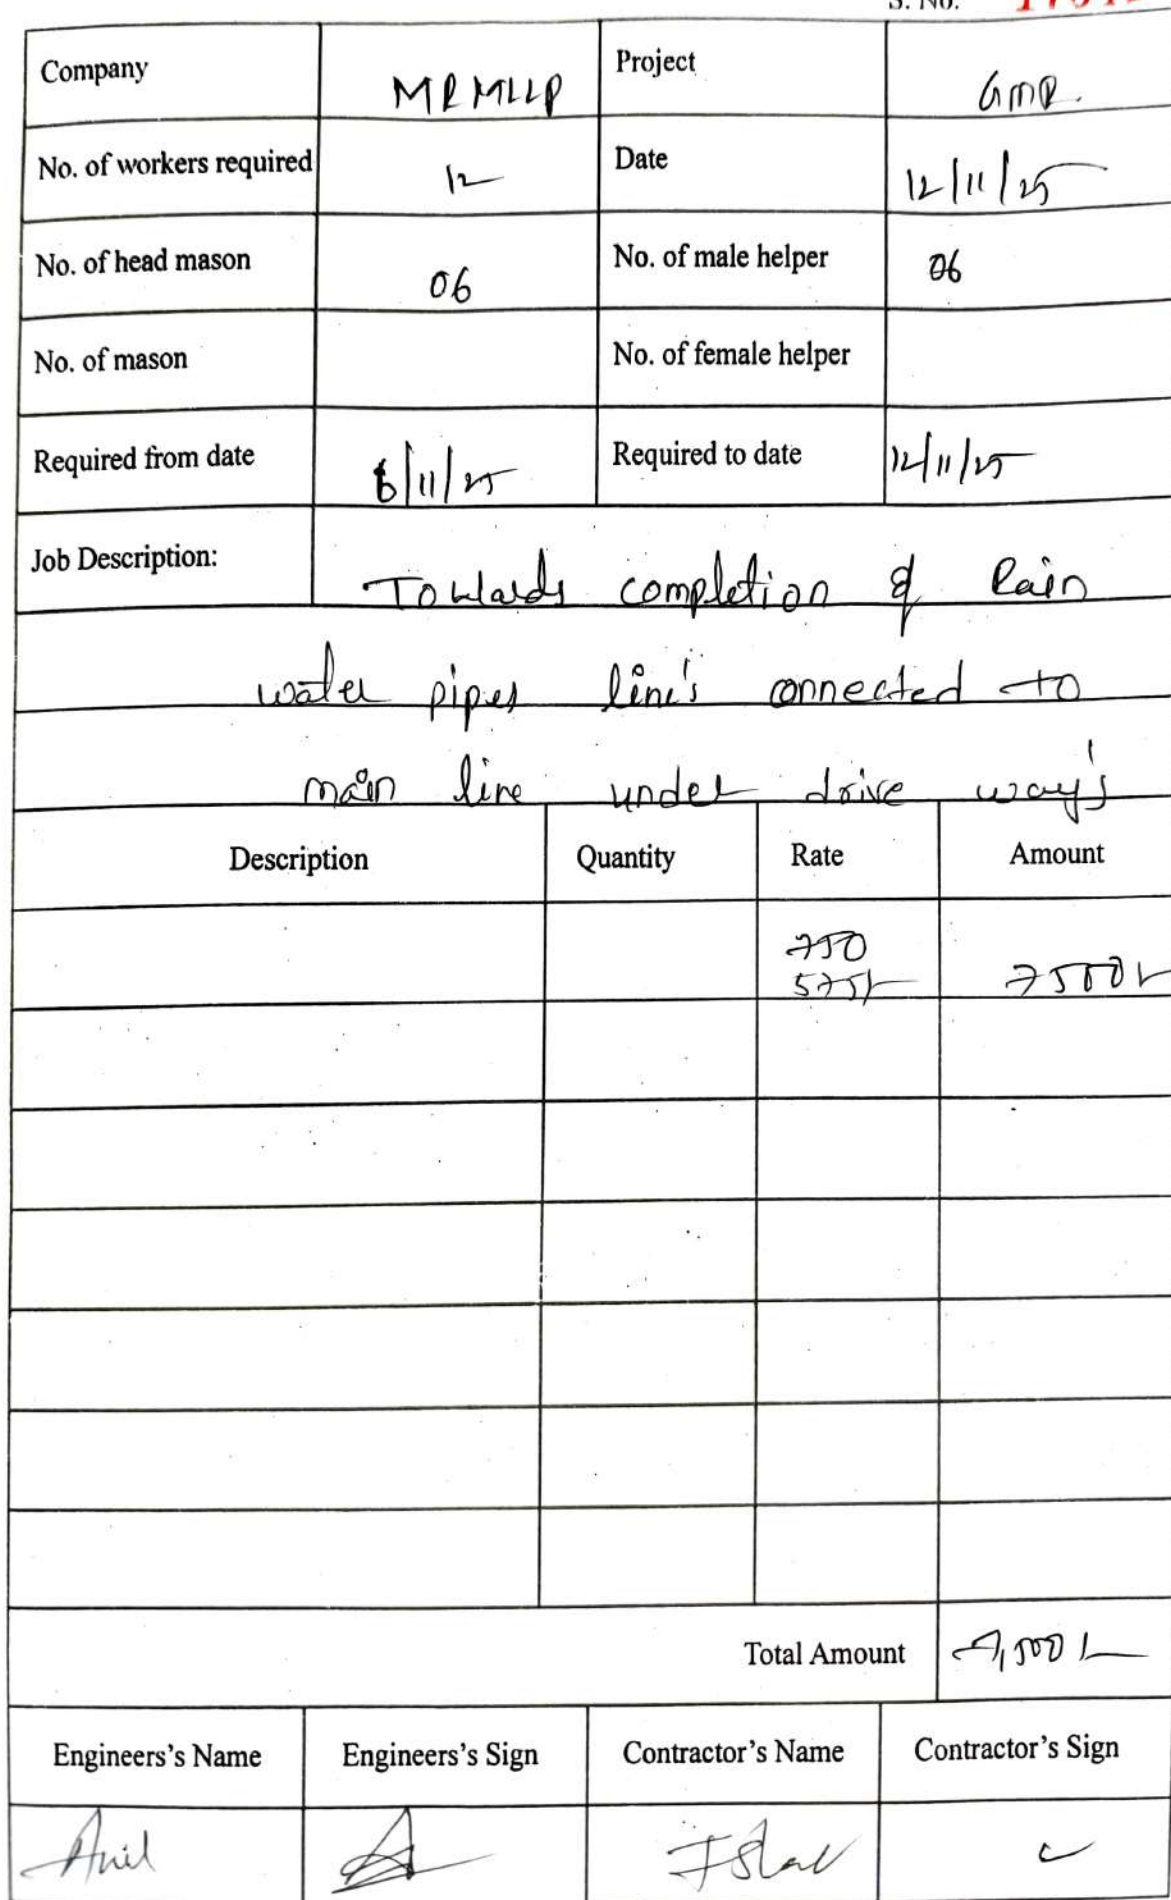 S. No.
Company MRMLLP Project GMR.
No. of workers required 12 Date 12/11/25
No. of head mason 06 No. of male helper 06
No. of mason No. of female helper
Required from date 6/11/25 Required to date 12/11/25
Job Description: Towards completion of Rain
water pipes line's connected to
main line under drive way's
Description Quantity Rate Amount
750
575/- 7500/-
Total Amount 7,500/-
Engineers's Name Engineers's Sign Contractor's Name Contractor's Sign
Anil